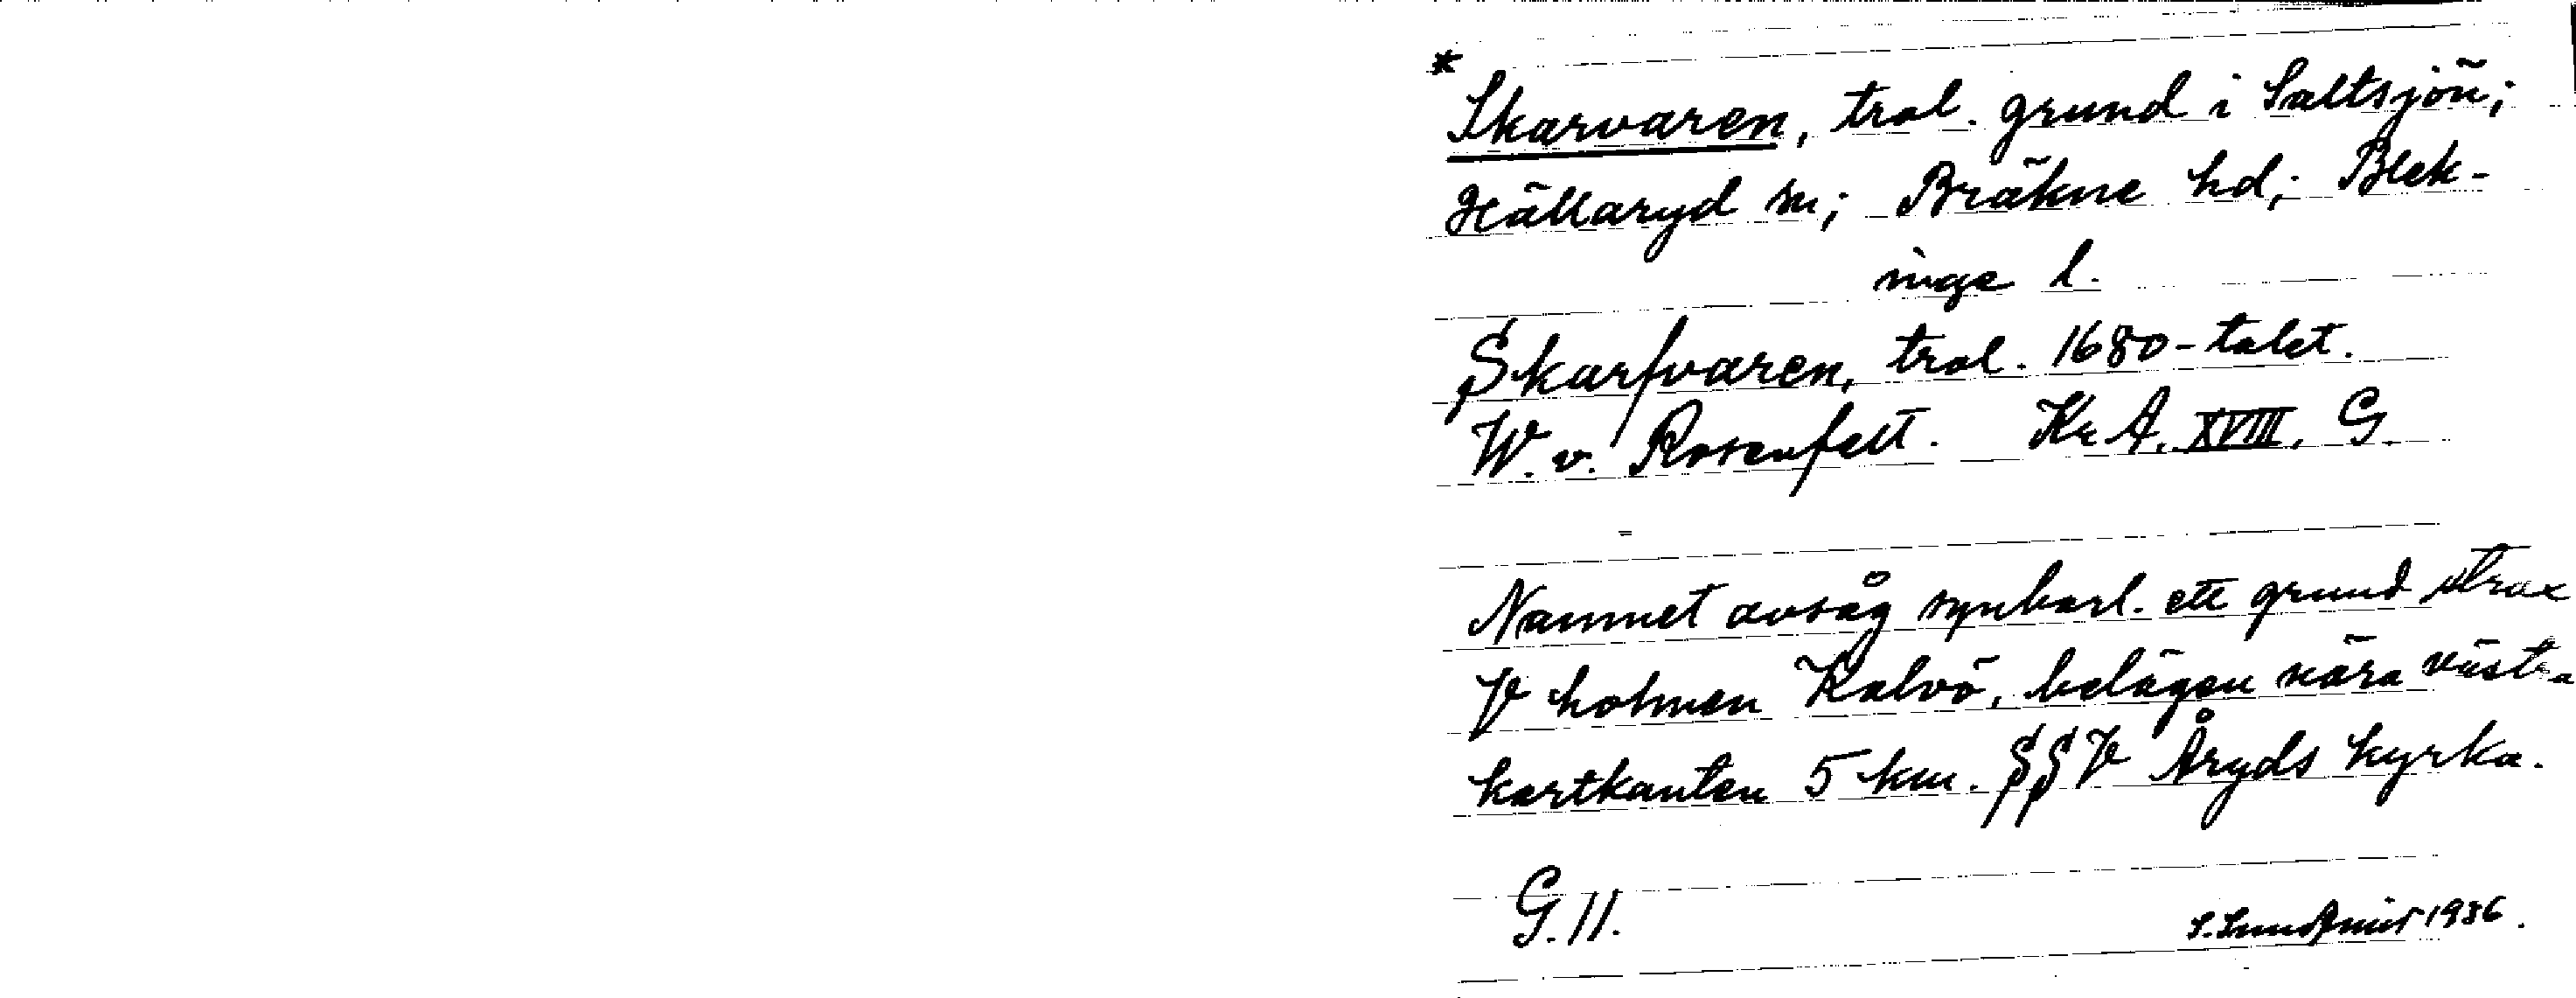 *
Skarvaren, trol. grund i Saltsjön;
Hällaryd sn; Bräkne hd; Blek-
inge l.
Skarfvaren, trol. 1680-talet.
W. v. Rosenfelt. Kr A. XVIII. G.
Namnet avsåg synbarl. ett grund strax
V holmen Kalvö, belägen nära västra
kartkanten 5 km. SSV Åryds kyrka.
G. 11.
1936.